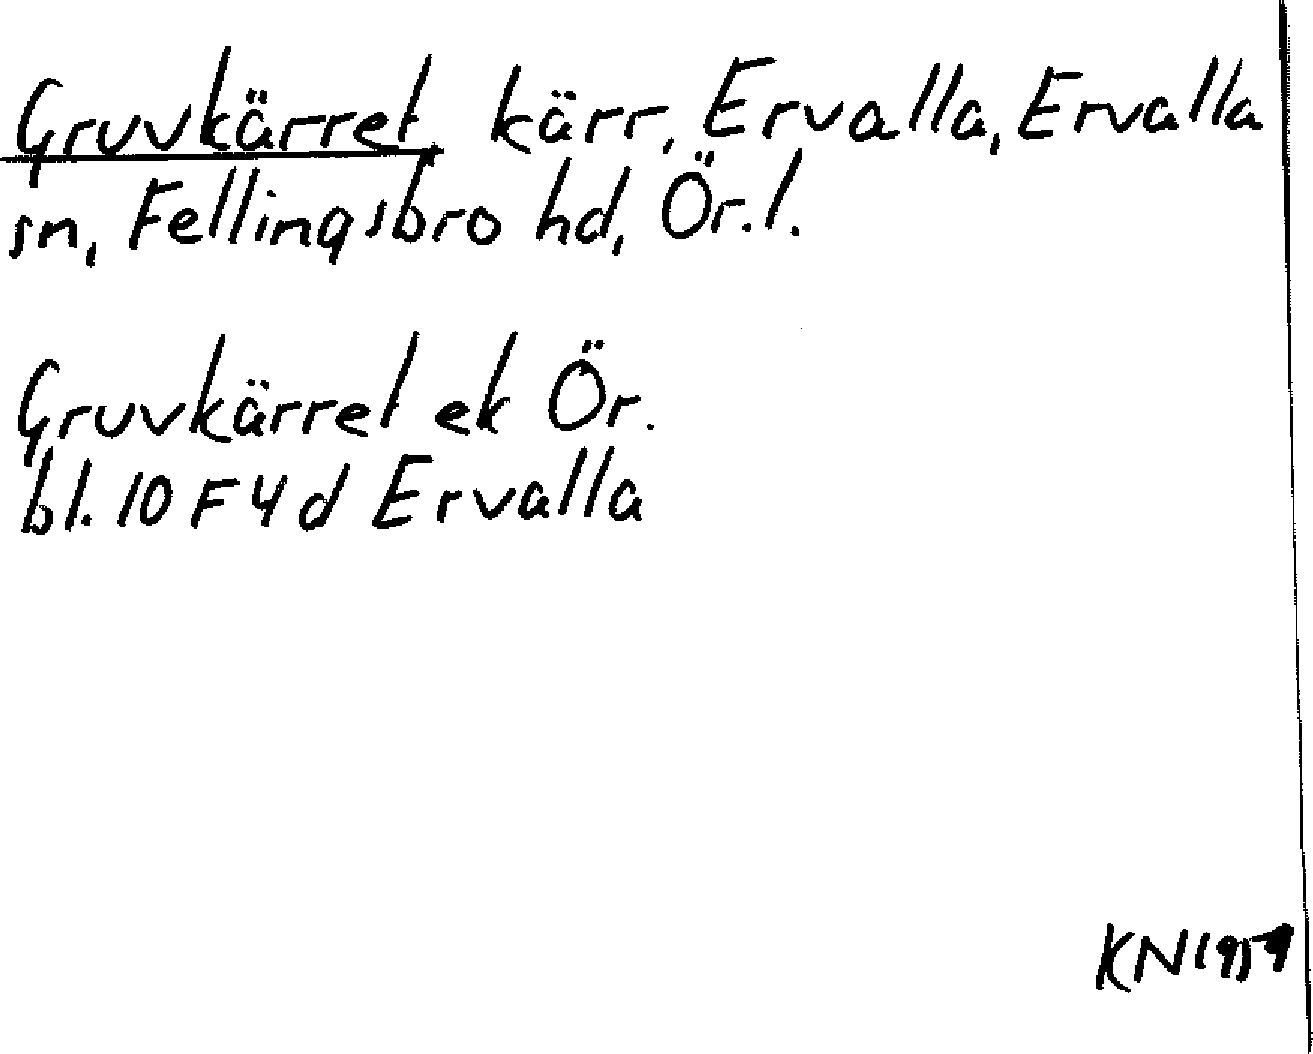 Gruvkärret, kärr, Ervalla, Ervalla
sn, Fellingsbro hd, Ör.l.
Gruvkärret ek Ör.
bl. 10 F 4 d Ervalla
KN 1959